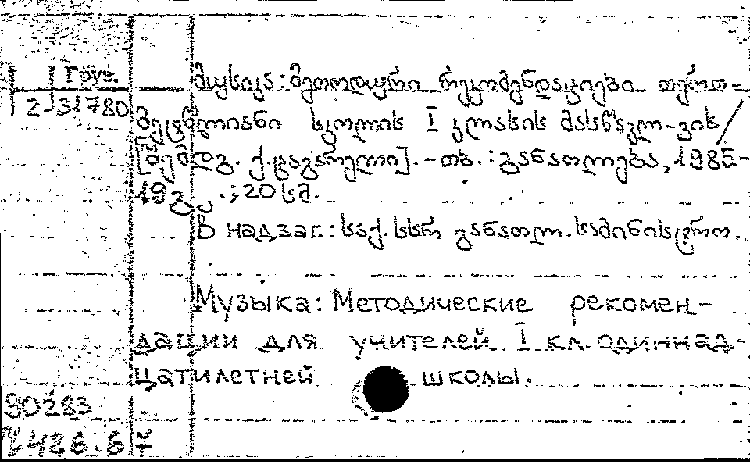 Груз.
2-31780
მუსიკა: მეთოდური რეკომენდაციები თერთ-
მეტწლიანი სკოლის I კლასის მასწავლ-ვის/
[შემდგ. ქ. ცაგარელი]. - თბ.: განათლება, 1985-
19გვ.; 20სმ.
В надзаг.: საქ. სსრ განათლ. სამინისტრო.
Музыка: Методические рекомен-
дации для учителей I кл. одиннад-
цатилетней школы.
90283